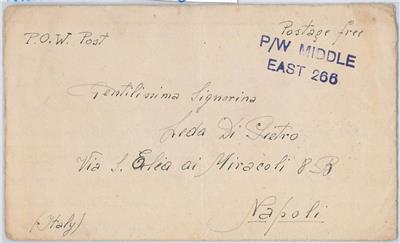 P.O.W. Post
Postage free
P/W MIDDLE
EAST 266
Gentilissima Signorina
Leda Di Pietro
Via S. Elia ai Miracoli 8 B
Napoli
(Italy)